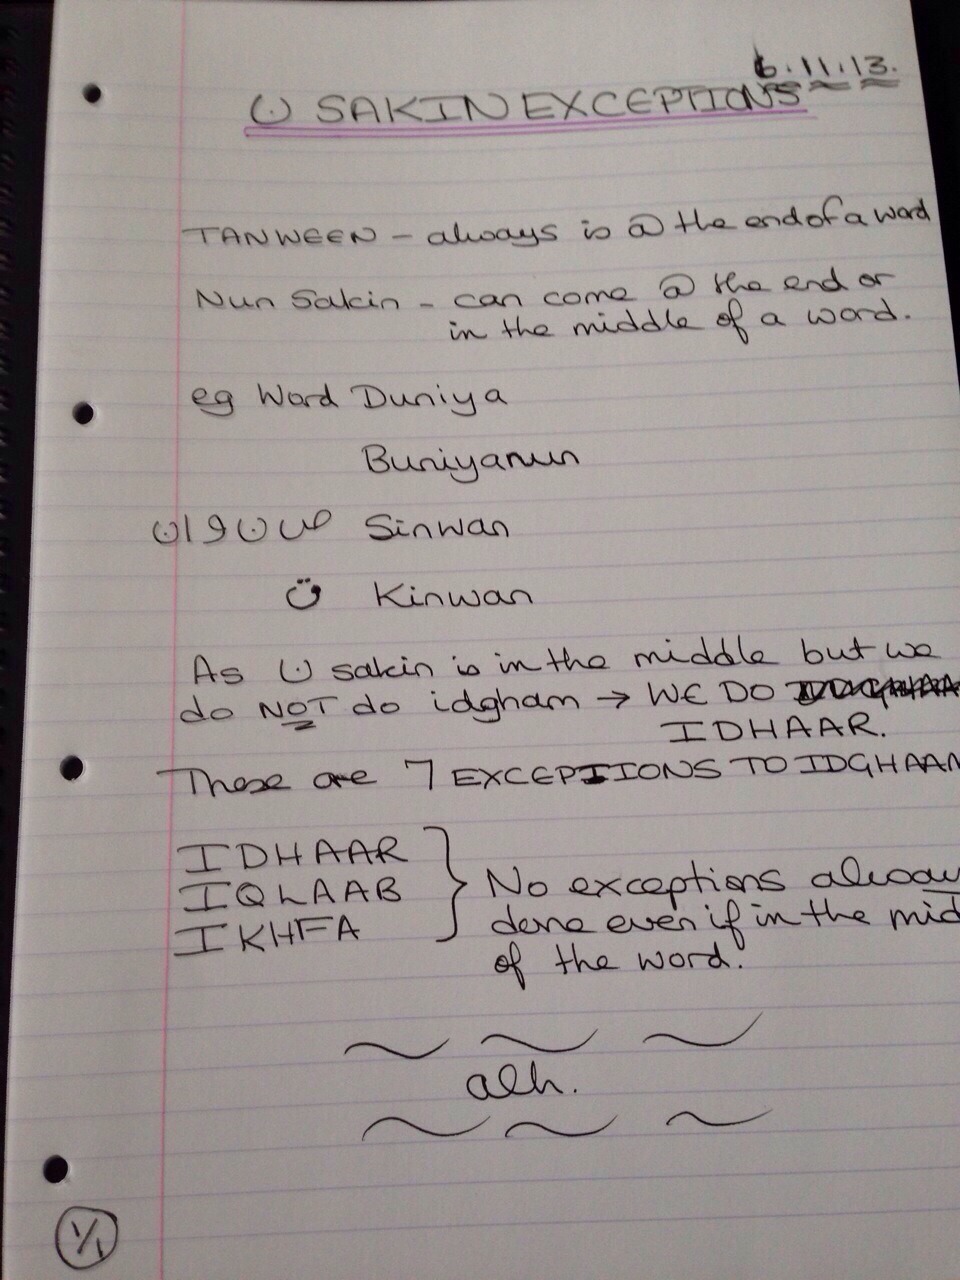 6.11.13.
ن SAKIN EXCEPTIONS
TANWEEN - always is @ the end of a word
Nun Sakin - can come @ the end or
in the middle of a word.
eg Word Duniya
Buniyanun
ص ن و ا ن Sinwan
ق Kinwan
As ن sakin is in the middle but we
do NOT do idgham → WE DO
IDHAAR.
These are 7 EXCEPTIONS TO IDGHAAM
IDHAAR
IQLAAB
IKHFA
No exceptions alway
done even if in the mid
of the word.
alh.
1/1